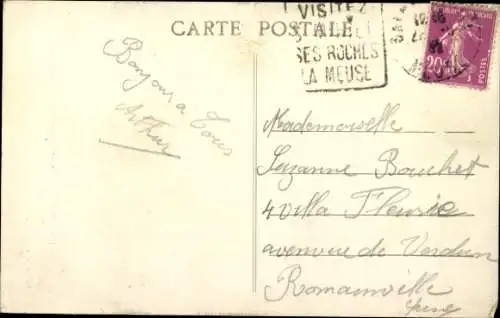 CARTE POSTALE
VISITEZ
SES ROCHES
LA MEUSE
20c
POSTES
Bonjour a Tous
Arthur
Mademoiselle
Suzanne Bouchet
4 villa Fleurie
avenue de Verdun
Romainville
Seine